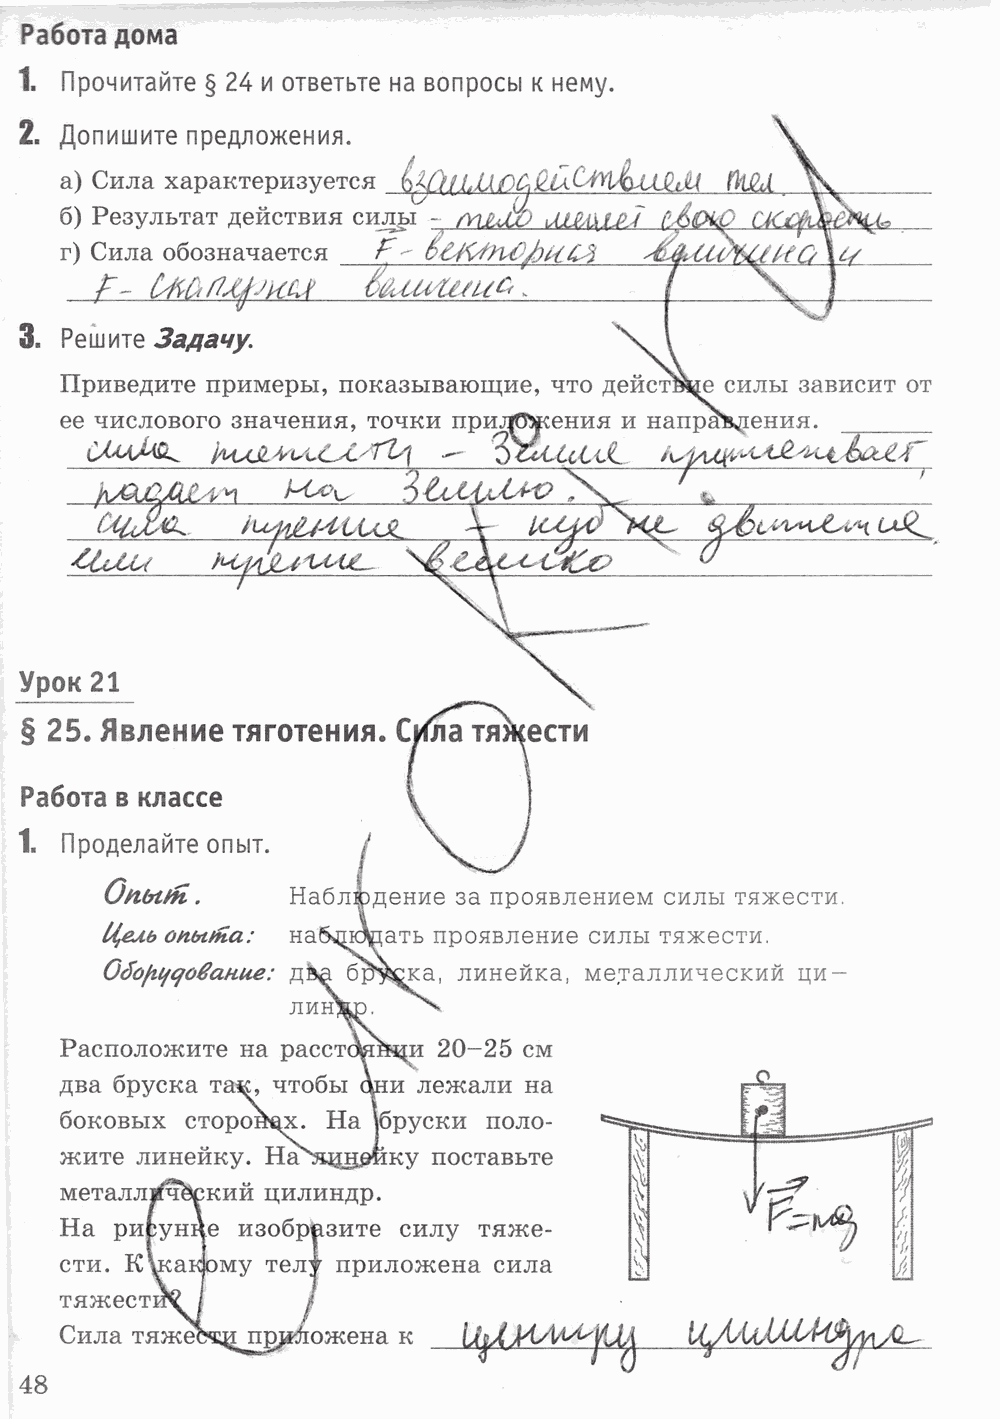 Работа дома
1. Прочитайте § 24 и ответьте на вопросы к нему.
2. Допишите предложения.
а) Сила характеризуется взаимодействием тел.
б) Результат действия силы - тело меняет свою скорость
г) Сила обозначается F - векторная величина и
F - скалярная величина.
3. Решите Задачу.
Приведите примеры, показывающие, что действие силы зависит от
ее числового значения, точки приложения и направления.
сила тяжести - Земля притягивает,
падает на Землю.
сила трения - куб не движется
если трение велико
Урок 21
§ 25. Явление тяготения. Сила тяжести
Работа в классе
1. Проделайте опыт.
Опыт. Наблюдение за проявлением силы тяжести.
Цель опыта: наблюдать проявление силы тяжести.
Оборудование: два бруска, линейка, металлический ци–
линдр.
Расположите на расстоянии 20–25 см
два бруска так, чтобы они лежали на
боковых сторонах. На бруски поло-
жите линейку. На линейку поставьте
металлический цилиндр.
На рисунке изобразите силу тяже-
сти. К какому телу приложена сила
тяжести?
F=mg
Сила тяжести приложена к центру цилиндра
48